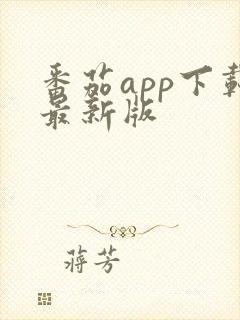 番茄app下载
最新版
蒋芳